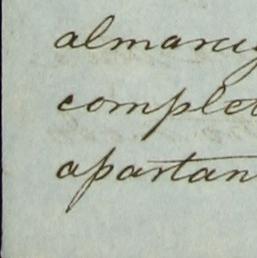 almareig
complet
apartan